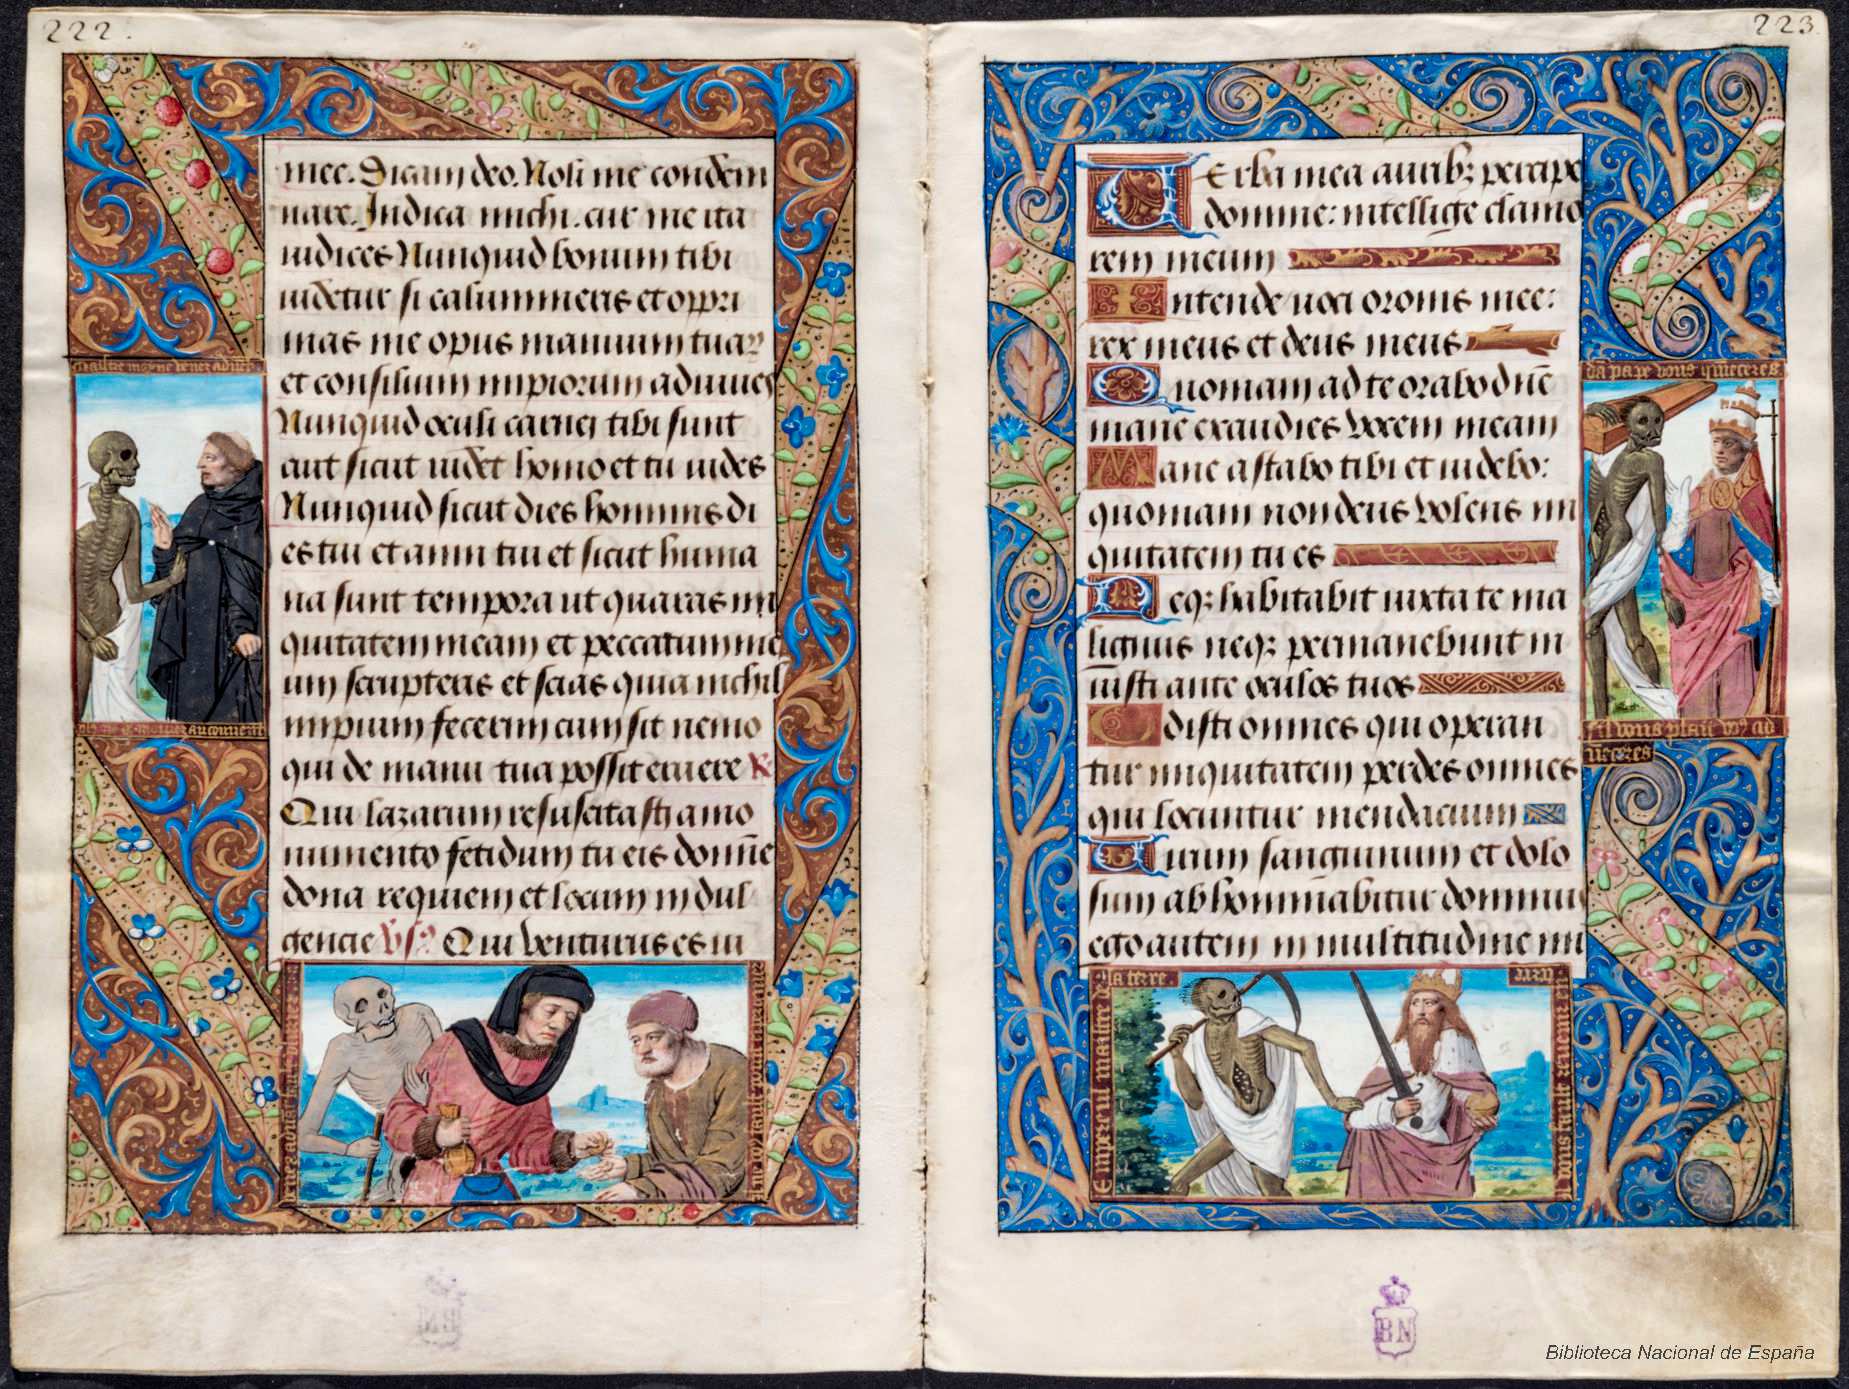 222.
mee. Dicam deo. Noli me condem
nare. Indica michi. cur me ita
iudices Nunquid bonum tibi
uidetur si calumnieris et oppri
mas me opus manuum tuarꝝ
et consilium impiorum adiuues
Nunquid oculi carnei tibi sunt
aut sicut uidet homo et tu uides
Nunquid sicut dies hominis di
es tui et anni tui et sicut huma
na sunt tempora ut queras ini
quitatem meam et peccatum me
um scrupteris et scias quia nichil
impium fecerim cum sit nemo
qui de manu tua possit eruere R
Qui lazarum resuscitasti a mo
numento fetidum tu eis domine
dona requiem et locum indul
gencie Vs Qui venturus es iu
223.
Verba mea auribꝫ percipe
domine: intellige clamo
rem meum
Intende uoci oronis mee:
rex meus et deus meus
Quoniam ad te orabo dne
mane exaudies vocem meam
Mane astabo tibi et uidebo:
quoniam non deus volens ini
quitatem tu es
Neqꝫ habitabit iuxta te ma
lignus neqꝫ permanebunt in
iusti ante oculos tuos
Odisti omnes qui operan
tur iniquitatem perdes omnes
qui locuntur mendacium
Uirum sanguinum et dolo
sum abhominabitur dominus
ego autem in multitudine mi
dā pape vous q
sil vous plait
la terre.
BN
Biblioteca Nacional de España